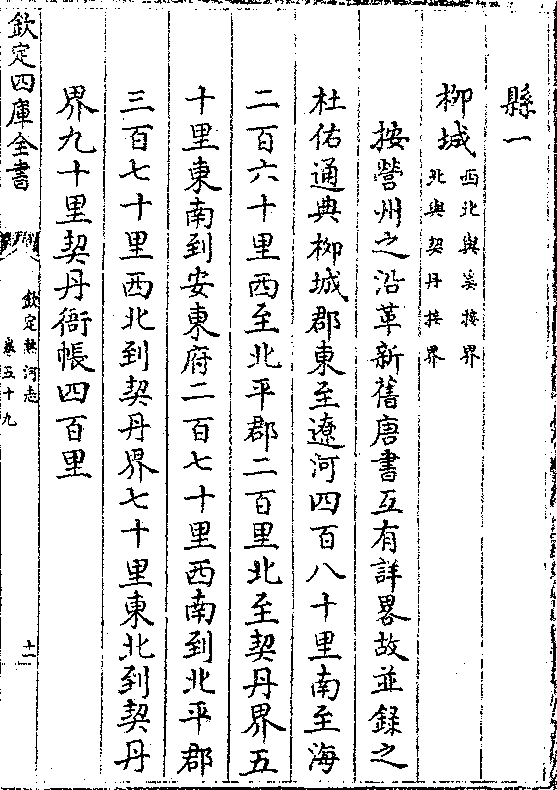 縣一
柳城 西北與奚接界
北與契丹接界
按營州之沿革新舊唐書互有詳畧故並録之
杜佑通典柳城郡東至遼河四百八十里南至海
二百六十里西至北平郡二百里北至契丹界五
十里東南到安東府二百七十里西南到北平郡
三百七十里西北到契丹界七十里東北到契丹
界九十里契丹衙帳四百里
欽定四庫全書
欽定熱河志
卷五十九
十一